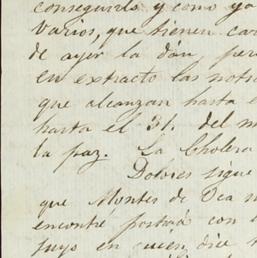 conseguirlo y como ya
varios, que tienen car
de ayer la dán, per
en extracto las noti
que alcanzan hasta e
hasta el 31. del m
la paz. La Cholera
Dolores sigue
que Montes de Oca m
encontré postrá con
suyo en quien, dice